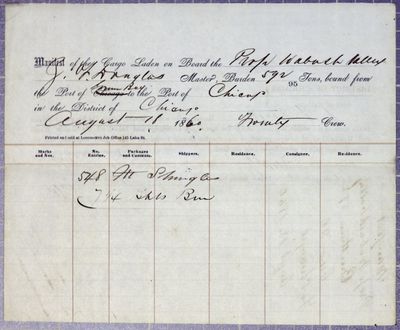 Manifest of the Cargo Laden on Board the Prop Wabash Valley
J. F. Douglas Master, Burden 592 95 Tons, bound from
the Port of Chicago to the Port of Chicago
in the District of Chicago
August 18 1860 Twenty Crew.
Printed and sold at Locomotive Job Office 145 Lake St.
Marks and Nos. No. Entries. Packages and Contents. Shippers. Residence. Consignee. Residence.
548 M Shingles
714